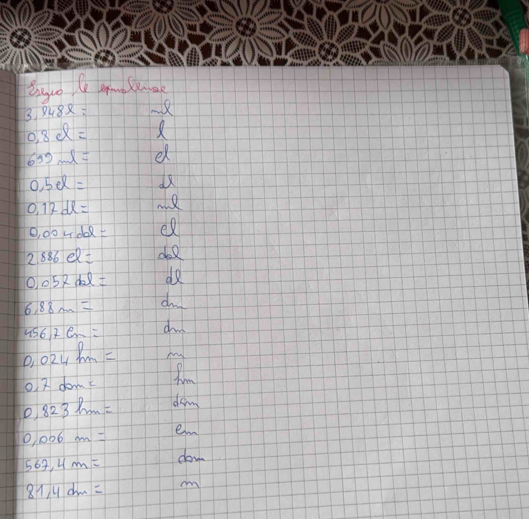 Eseguo le equivalenze
3,848l = ml
0,8 cl = l
699 ml = cl
0,5 cl = dl
0,17 dl = ml
0,004 dal = cl
2.886 cl = dal
0,057 dal = dl
6,88 m = dm
456,7 cm = dm
0,024 hm = m
0,7 dam = hm
0,823 hm = dam
0,006 m = cm
567,4 m = dam
81,4 dm = m